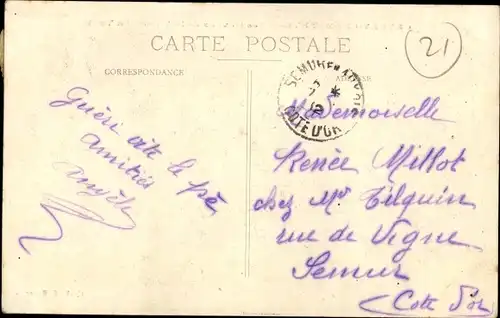 CARTE POSTALE
21
CORRESPONDANCE
ADRESSE
SEMUR EN AUXOIS
COTE D'OR
Guéri vite le
amitiés
Angèle
Mademoiselle
Renée Millot
chez Mr Tilquin
rue de Vigne
Semur
Cote d'or